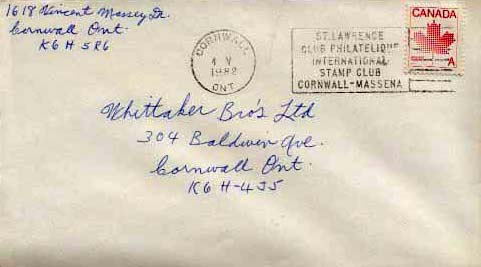 1618 Vincent Massey Dr.
Cornwall Ont.
K6H 5R6
CORNWALL
4 V
1982
ONT
ST. LAWRENCE
CLUB PHILATELIQUE
INTERNATIONAL
STAMP CLUB
CORNWALL-MASSENA
CANADA
A
Whittaker Bro's Ltd
304 Baldwin Ave.
Cornwall Ont.
K6H-4J5